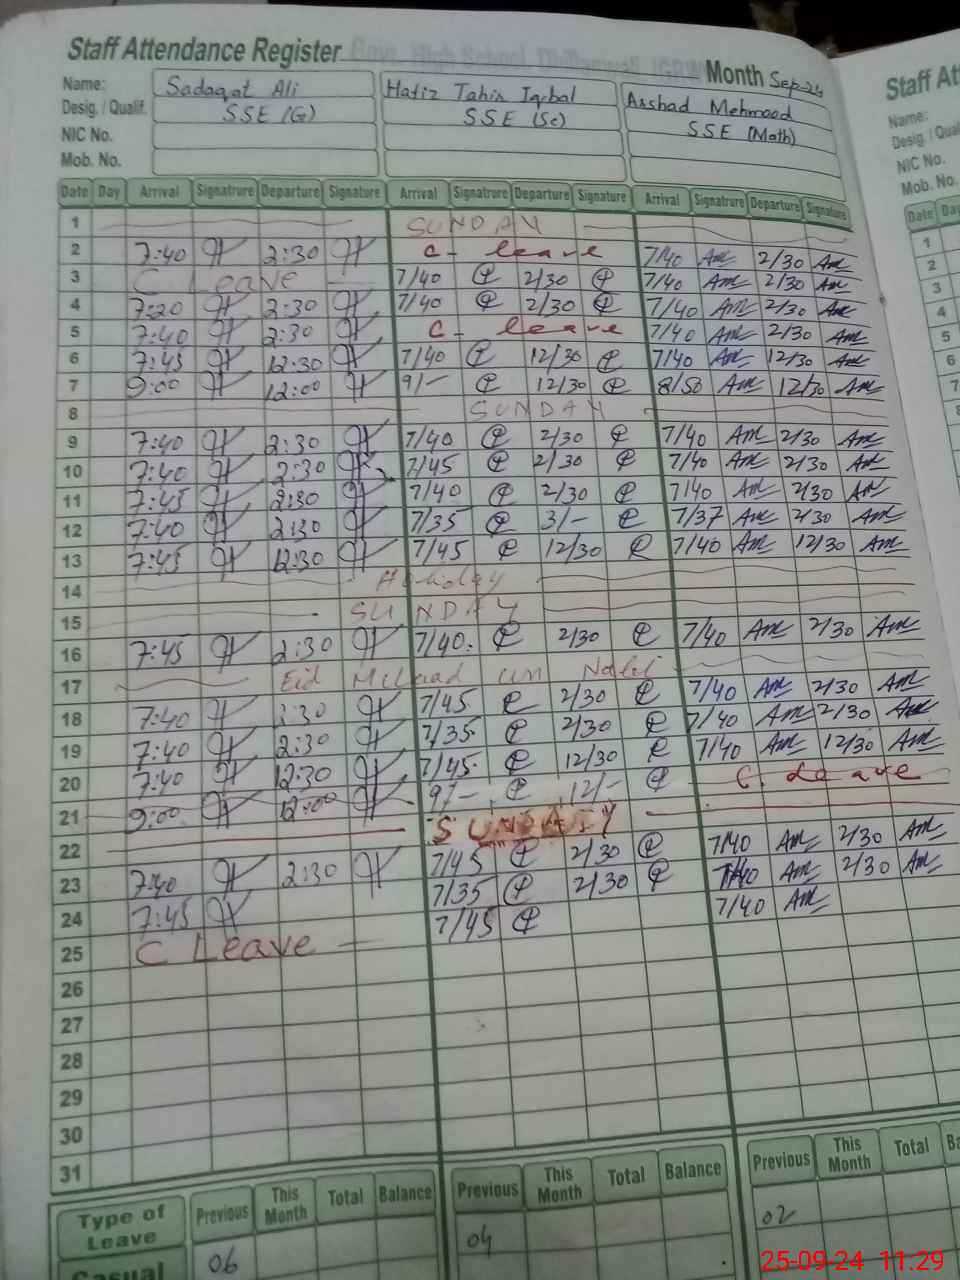 Staff Attendance Register
Month Sep-24
Name: Sadaqat Ali Hafiz Tahir Iqbal Arshad Mehmood
Desig. / Qualif. SSE (G) SSE (Sc) SSE (Math)
NIC No.
Mob. No.
Date Day Arrival Signatrure Departure Signature Arrival Signatrure Departure Signature Arrival Signatrure Departure Signature
1 SUNDAY
2 7:40 2:30 C- leave 7/40 Am 2/30 Am
3 C Leave 7/40 2/30 7/40 Am 2/30 Am
4 7:20 2:30 7/40 2/30 7/40 Am 2/30 Am
5 7:40 2:30 C- leave 7/40 Am 2/30 Am
6 7:45 12:30 7/40 12/30 7/40 Am 12/30 Am
7 9:00 12:00 9/- 12/30 8/50 Am 12/30 Am
8 SUNDAY
9 7:40 2:30 7/40 2/30 7/40 Am 2/30 Am
10 7:40 2:30 7/45 2/30 7/40 Am 2/30 Am
11 7:45 2:30 7/40 2/30 7/40 Am 2/30 Am
12 7:40 2:30 7/35 3/- 7/37 Am 2/30 Am
13 7:45 12:30 7/45 12/30 7/40 Am 12/30 Am
14 Holiday
15 SUNDAY
16 7:45 2:30 7/40. 2/30 7/40 Am 2/30 Am
17 Eid Milaad un Nabi
18 7:40 2:30 7/45 2/30 7/40 Am 2/30 Am
19 7:40 2:30 7/35 2/30 7/40 Am 2/30 Am
20 7:40 12:30 7/45 12/30 7/40 Am 12/30 Am
21 9:00 12:00 9/- 12/- C. Leave
22 SUNDAY
23 7:40 2:30 7/45 2/30 7/40 Am 2/30 Am
24 7:45 7/35 2/30 7/40 Am 2/30 Am
25 C Leave 7/45 7/40 Am
26
27
28
29
30
31
Type of Leave Previous This Month Total Balance Previous This Month Total Balance Previous This Month Total Ba
Casual 06 04 02
Staff At
Name:
Desig. / Qual
NIC No.
Mob. No.
Date Da
1
2
3
4
5
6
7
8
25-09-24 11:29